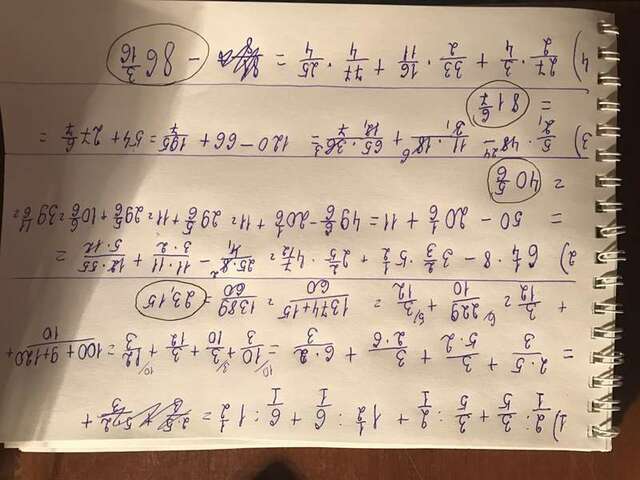 1) 2/1 : 3/5 + 3/5 : 2/1 + 1 1/2 : 6/1 + 6/1 : 1 1/2 = +
= 2·5/3 + 3/5·2 + 3/2·6 + 6·2/3 = 10/3 + 3/10 + 3/12 + 12/3 = 100+9+120/10 +
+ 3/12 = 229/10 + 3/12 = 1374+15/60 = 1389/60 = 23,15
2) 6 1/4 · 8 − 3 2/3 · 5 1/2 + 2 2/5 · 4 7/12 = 25·8/4 − 11·11/3·2 + 12·55/5·12 =
= 50 − 20 1/6 + 11 = 49 6/6 − 20 1/6 + 11 = 29 5/6 + 11 = 29 5/6 + 10 6/6 = 39 11/6 =
= 40 5/6
3) 5/2 · 48 − 11·18/3 + 65·36/12·7 = 120 − 66 + 195/7 = 54 + 27 6/7 =
= 81 6/7
4) 27/2 · 3/4 + 33/2 · 16/11 + 77/4 · 25/4 = − 86 3/16